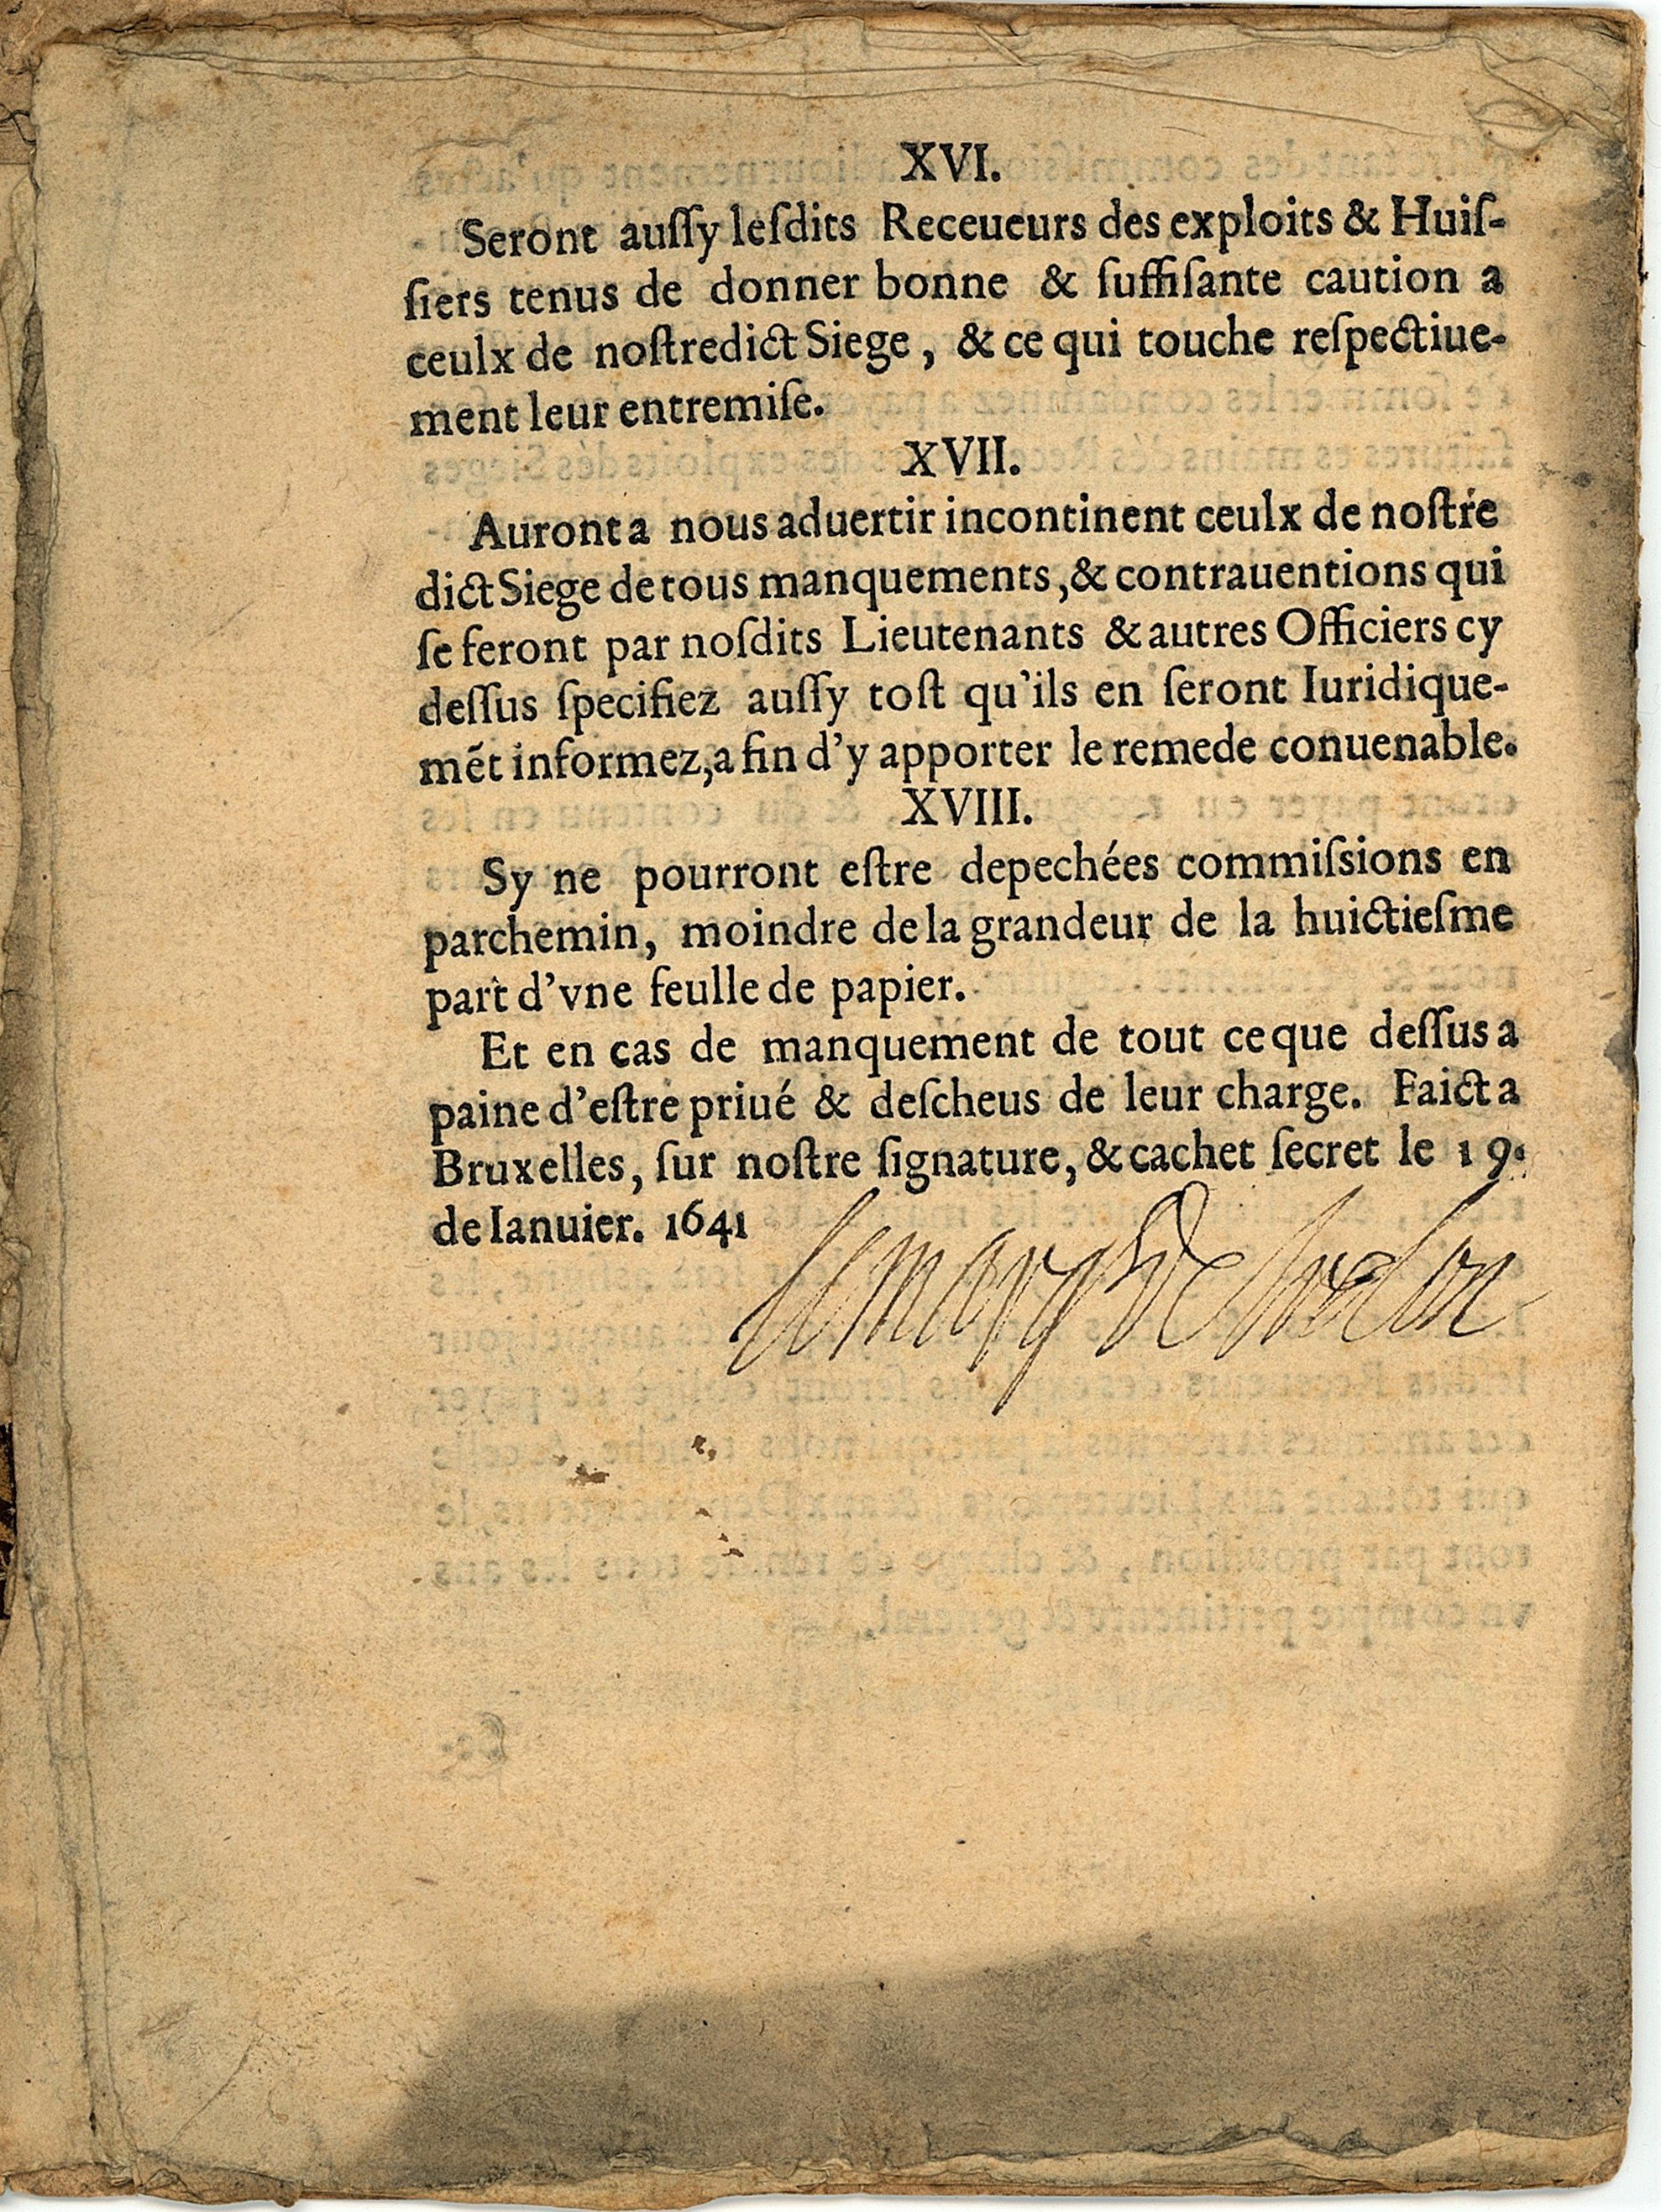 XVI.
Seront auſſy leſdits Receueurs des exploits & Huiſ-
ſiers tenus de donner bonne & ſuffiſante caution a
ceulx de noſtredict Siege, & ce qui touche reſpectiue-
ment leur entremiſe.
XVII.
Auront a nous aduertir incontinent ceulx de noſtre
dict Siege de tous manquements, & contrauentions qui
ſe feront par noſdits Lieutenants & autres Officiers cy
deſſus ſpecifiez auſſy toſt qu'ils en ſeront Iuridique-
mẽt informez, a fin d'y apporter le remede conuenable.
XVIII.
Sy ne pourront eſtre depechées commiſsions en
parchemin, moindre de la grandeur de la huictieſme
part d'vne feulle de papier.
Et en cas de manquement de tout ce que deſſus a
paine d'eſtre priué & deſcheus de leur charge. Faict a
Bruxelles, ſur noſtre ſignature, & cachet ſecret le 19.
de Ianuier. 1641